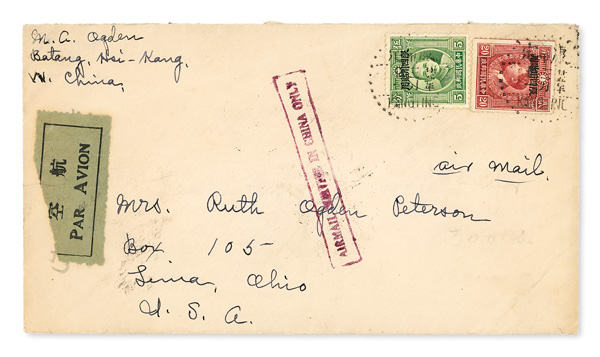 M. A. Ogden
Batang, Hsi-Kang,
W. China,
5
5
20
20
AIRMAIL IN CHINA ONLY
航空
PAR AVION
air mail.
Mrs. Ruth Ogden Peterson
Box 105
Lima, Ohio
U. S. A.